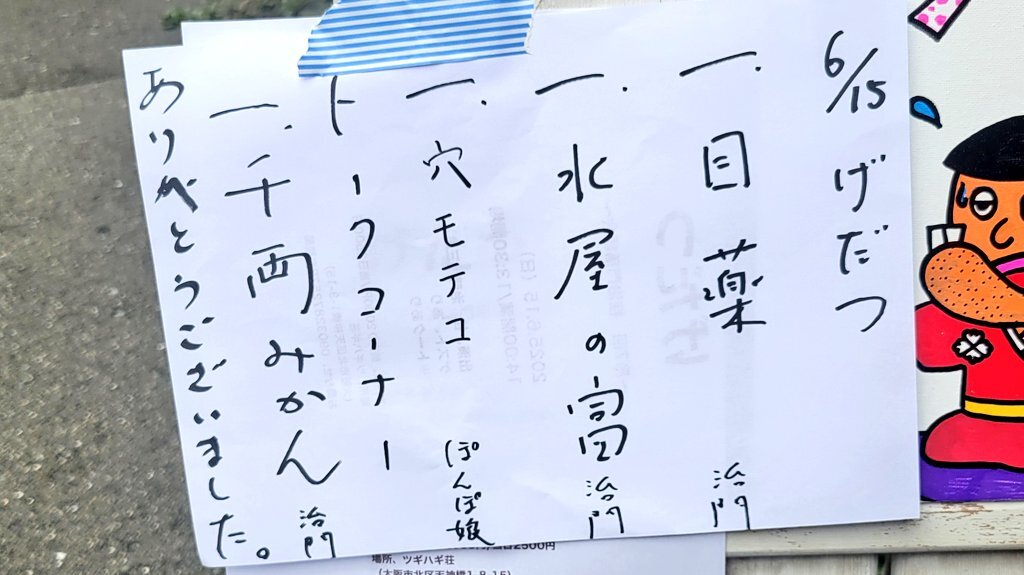 6/15 げだつ
一. 目薬 治門
一. 水屋の富 治門
一. 穴モテコ ぽんぽ娘
トークコーナー
一. 千両みかん 治門
ありがとうございました。
場所、ツギハギ荘